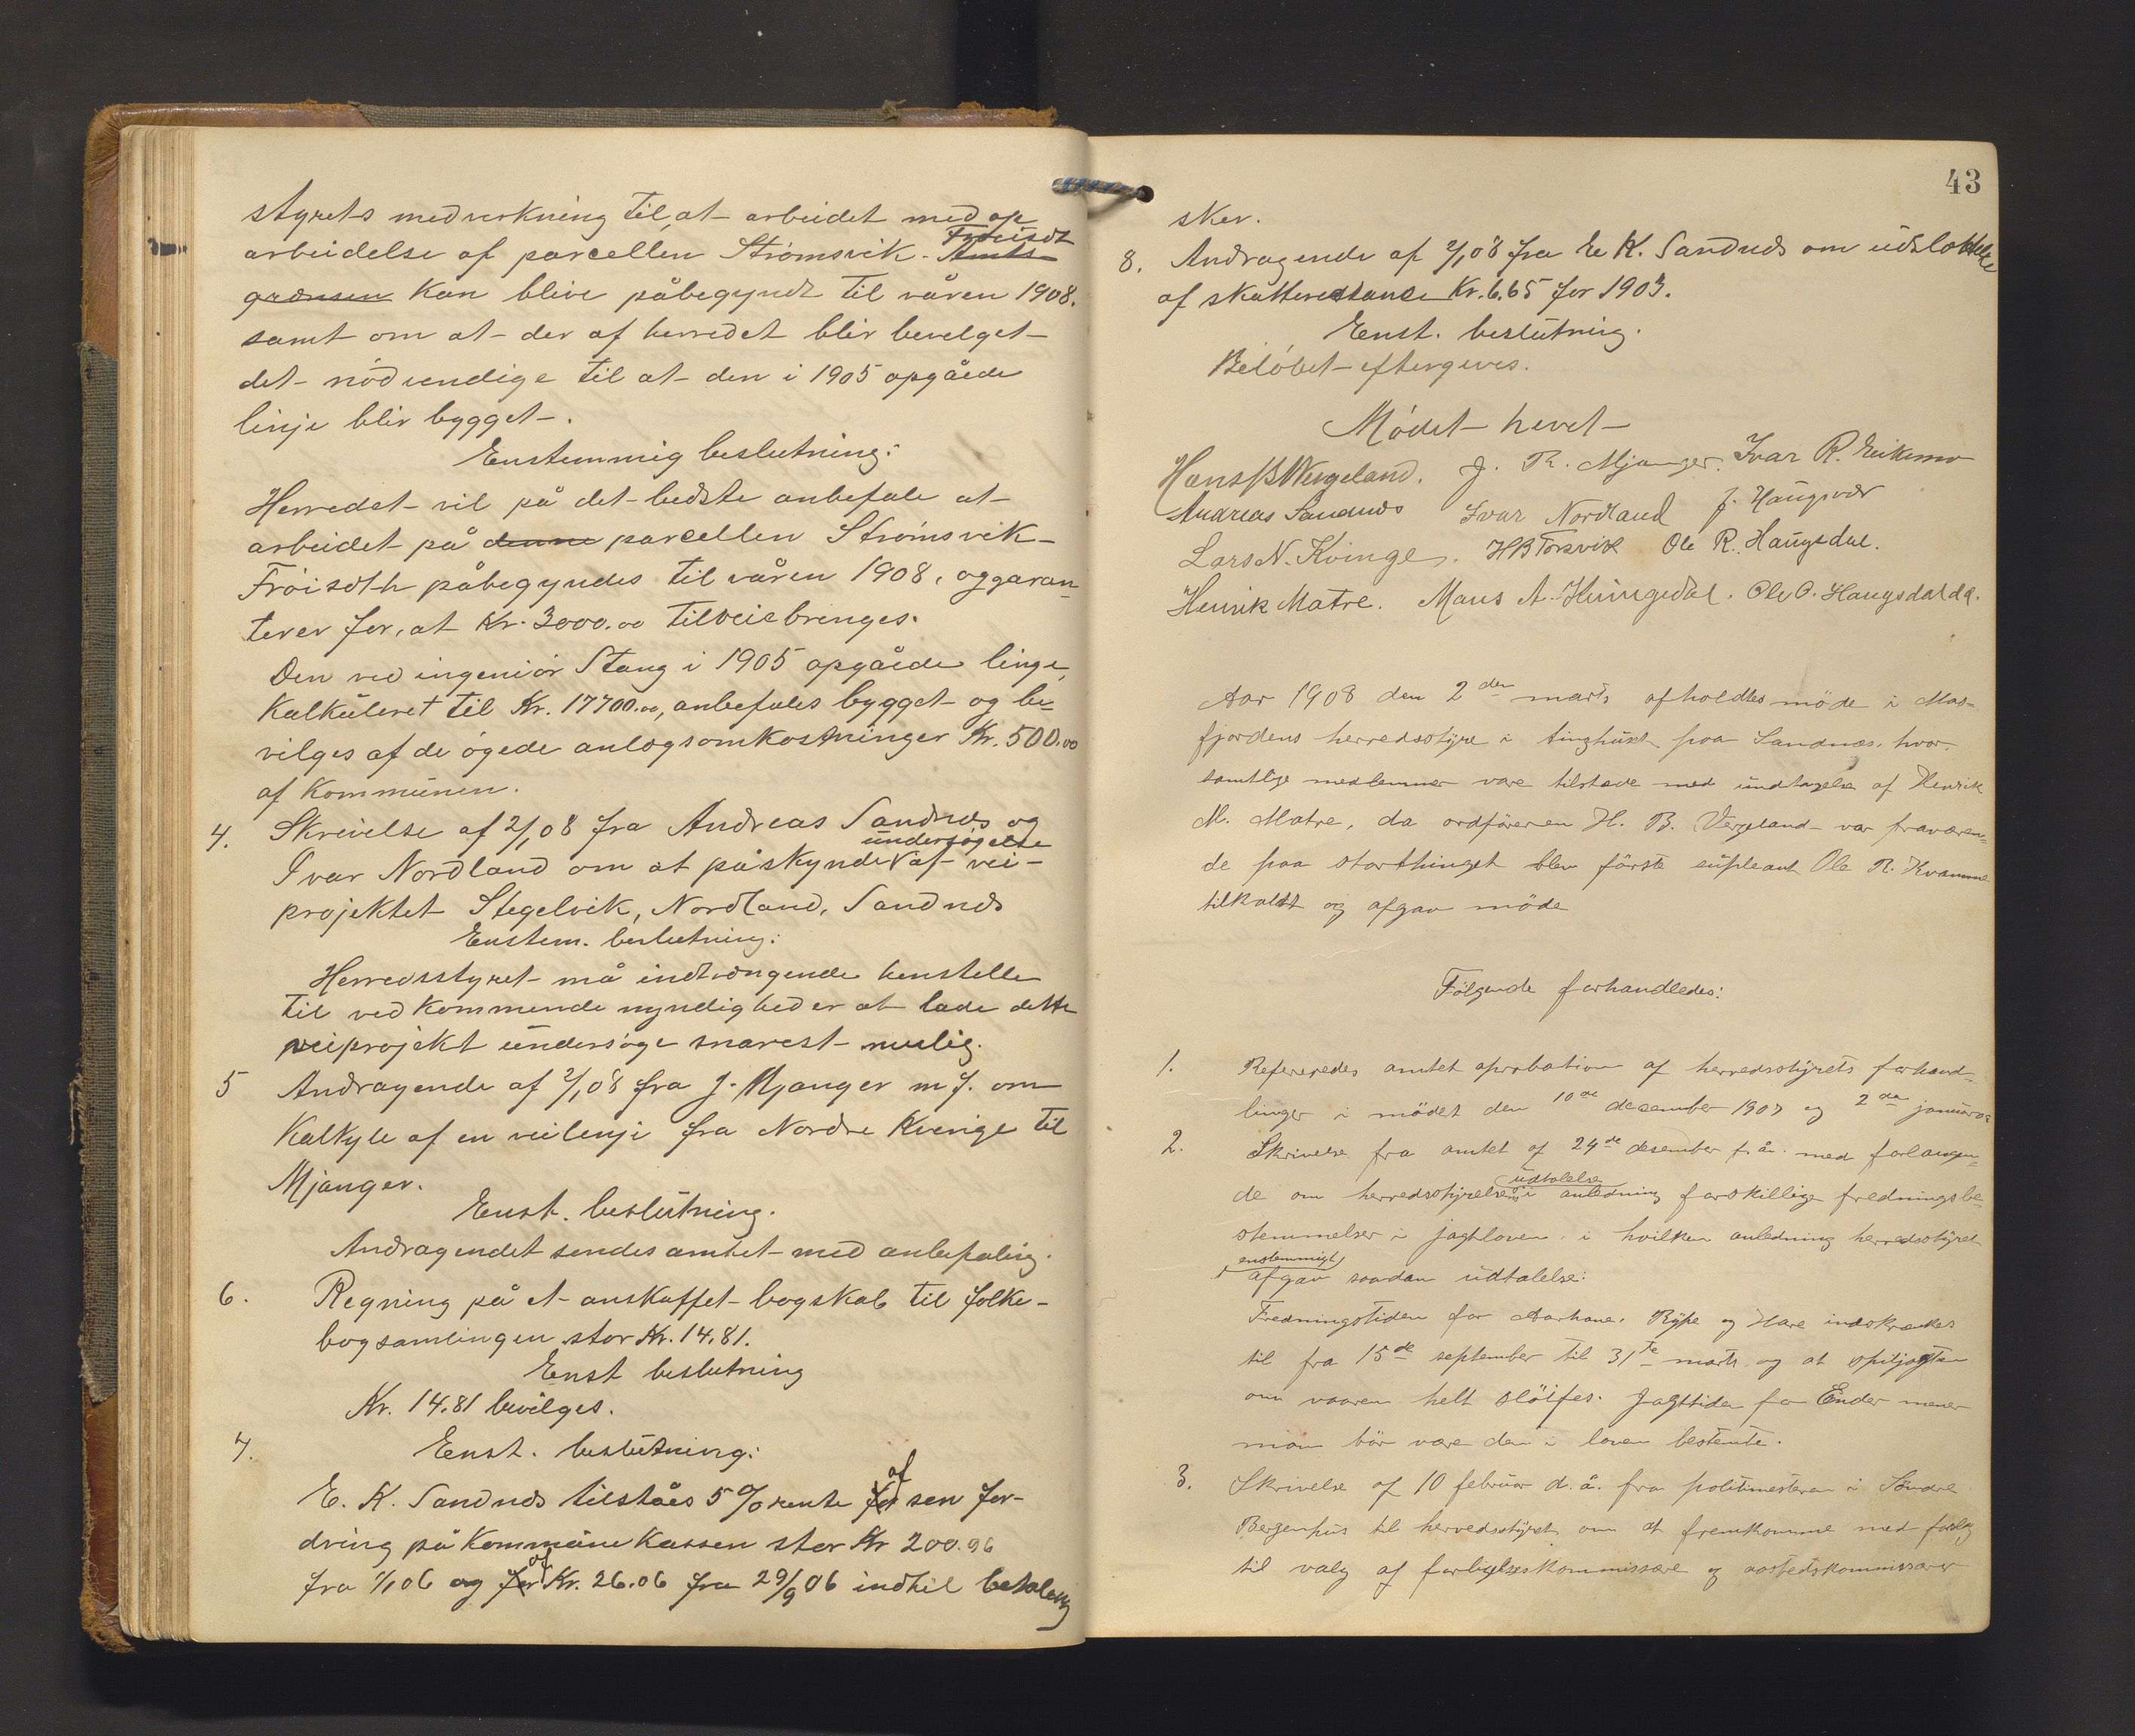 styrets medverkning til, at arbeidet med op
arbeidelse af parcellen Strømsvik - Amts- Frøisdt
grænsen kan blive påbegyndt til våren 1908.
samt om at der af herredet blir bevelget
det nödvendige til at den i 1905 opgåede
linje blir bygget.
Enstemmig beslutning:
Herredet vil på det bedste anbefale at
arbeidet på denne parcellen Strömsvik-
Fröisdth påbegyndes til våren 1908, og garan-
terer for, at Kr. 3000.00 tilveiebringes.
Den ved ingeniör Stang i 1905 opgåede linje,
Kalkuleret til Kr. 17700.00, anbefales bygget og be-
vilges af de ögede anlægsomkostninger Kr. 500.00
af Kommunen.
4. Skrivelse af 2/1 08 fra Andreas Sandnes og
Ivar Nordland om at påskynde undersøgelse af vei-
projektet Stegelvik, Nordland, Sandnes
Enstem. beslutning:
Herredsstyret må indtrængende henstelle
til vedkommende myndigheder at lade dette
veiprojekt undersöge snarest mulig.
5 Andragende af 2/1 08 fra J. Mjanger m fl. om
Kalkyle af en veilenje fra Nordre Kvinge til
Mjanger.
Enst. beslutning.
Andragendet sendes amtet med anbefaling.
6. Regning på et anskaffet bogskab til folke-
bogsamlingen stor Kr. 14.81.
Enst beslutning
Kr. 14.81 bevilges.
7. Enst. beslutning:
E. K. Sandnes tilståes 5 % rente for af sen for-
dring på Kommunekassen stor Kr 200.96
fra 1/1 06 og for af Kr. 26.06 fra 29/9 06 indtil betaling
43
sker.
8. Andragende af 2/1 08 fra E. K. Sandnes om udslettelse
af skatterestance Kr. 6.65 for 1903.
Enst. beslutning.
Belöbet eftergives.
Mödet hevet
Hans B Wergeland. J. R. Mjanger. Ivar R. Eikemo
Andreas Sandnes Ivar Nordland J. Haugsvær
Lars N. Kvinge. H B Torsvik Ole R. Haugsdal.
Henrik Matre. Mans A. Kvingedal. Ole O. Haugsdal d.æ.
Aar 1908 den 2den marts afholdtes möde i Mas-
fjordens herredsstyre i tinghuset paa Sandnæs, hvor
samtlige medlemmer vare tilstede med undtagelse af Henrik
M. Matre, da ordföreren H. B. Vergeland var fraværen-
de paa storthinget blev förste supleant Ole R. Kvamme
tilkaldt og afgav möde
Fölgende forhandledes:
1. Refereredes amtet aprobation af herredsstyrets forhand-
linger i mödet den 10de december 1907 og 2den januar
2. Skrivelse fra amtet af 24de desember f. år. med forlangen-
de om herredsstyrelsens udtalelse i anledning forskillige fredningsbe-
stemmelser i jagtloven, i hvilken anledning herredsstyret
enstemmigt afgav saadan udtalelse:
Fredningstiden for Aarhane, Rype og Hare indskrænkes
til fra 15de september til 31te marts og at spiljagten
om vaaren helt slöifes. Jagttiden for Ender mener
man bör være den i loven bestemte.
3. Skrivelse af 10 februar d. å. fra politimesteren i Söndre
Bergenhus til herredsstyret om at fremkomme med forslag
til valg af forligelseskommissære og aastedskommissærer